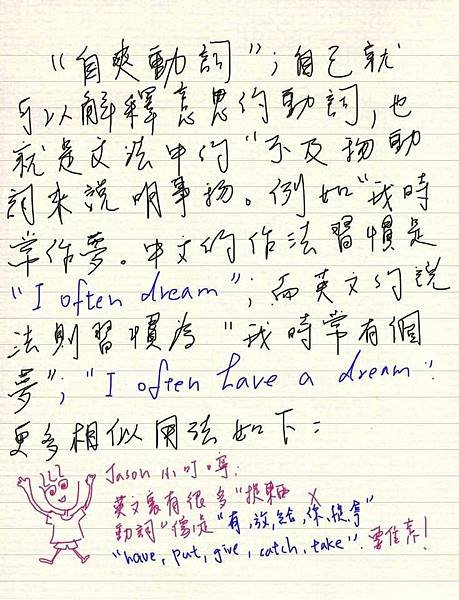 “自爽動詞”；自己就
可以解釋意思的動詞，也
就是文法中的“不及物動
詞來說明事物。例如“我時
常作夢。中文的作法習慣是
“I often dream”；而英文的說
法則習慣為“我時常有個
夢”；“I often have a dream”.
更多相似用法如下：
Jason 小叮嚀：
英文裏有很多“換東西
動詞”像是“有,放,給,抓,拿”
“have, put, give, catch, take”. 要住意!